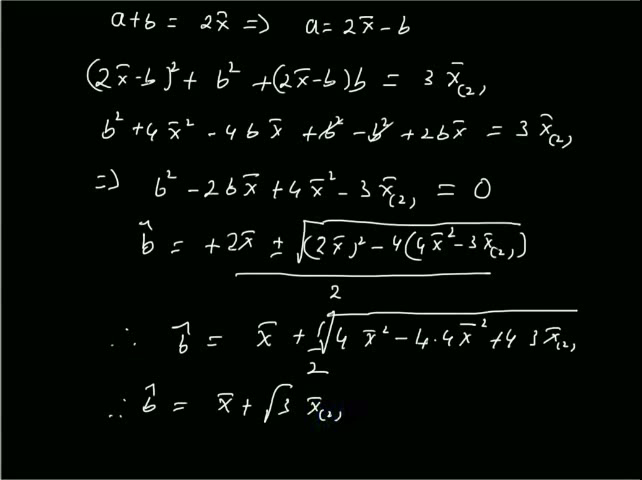 a+b = 2x̄ => a = 2x̄-b
(2x̄-b)² + b² + (2x̄-b)b = 3 x̄₍₂₎
b² + 4x̄² - 4bx̄ + b² - b² + 2bx̄ = 3 x̄₍₂₎
=> b² - 2bx̄ + 4x̄² - 3x̄₍₂₎ = 0
b̂ = +2x̄ ± √((2x̄)² - 4(4x̄² - 3x̄₍₂₎))
2
∴ b̂ = x̄ + ½√(4 x̄² - 4·4x̄² + 4 3 x̄₍₂₎
∴ b̂ = x̄ + √3 x̄₍₂₎